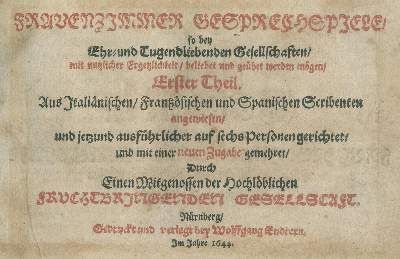 FRAVENZIMMER GESPRECHSPIELE/
so bey
Ehr- und Tugendliebenden Gesellschaften/
mit nutzlicher Ergetzlichkeit/ beliebet und geübet werden mögen/
Erster Theil.
Aus Italiänischen/ Frantzösischen und Spanischen Scribenten
angewiesen/
und jetzund ausführlicher auf sechs Personen gerichtet/
und mit einer neuen Zugabe gemehret/
Durch
Einen Mitgenossen der Hochlöblichen
FRVCHTBRINGENDEN GESELLSCAFT.
Nürnberg/
Gedruckt und verlegt bey Wolffgang Endtern.
Im Jahre 1644.